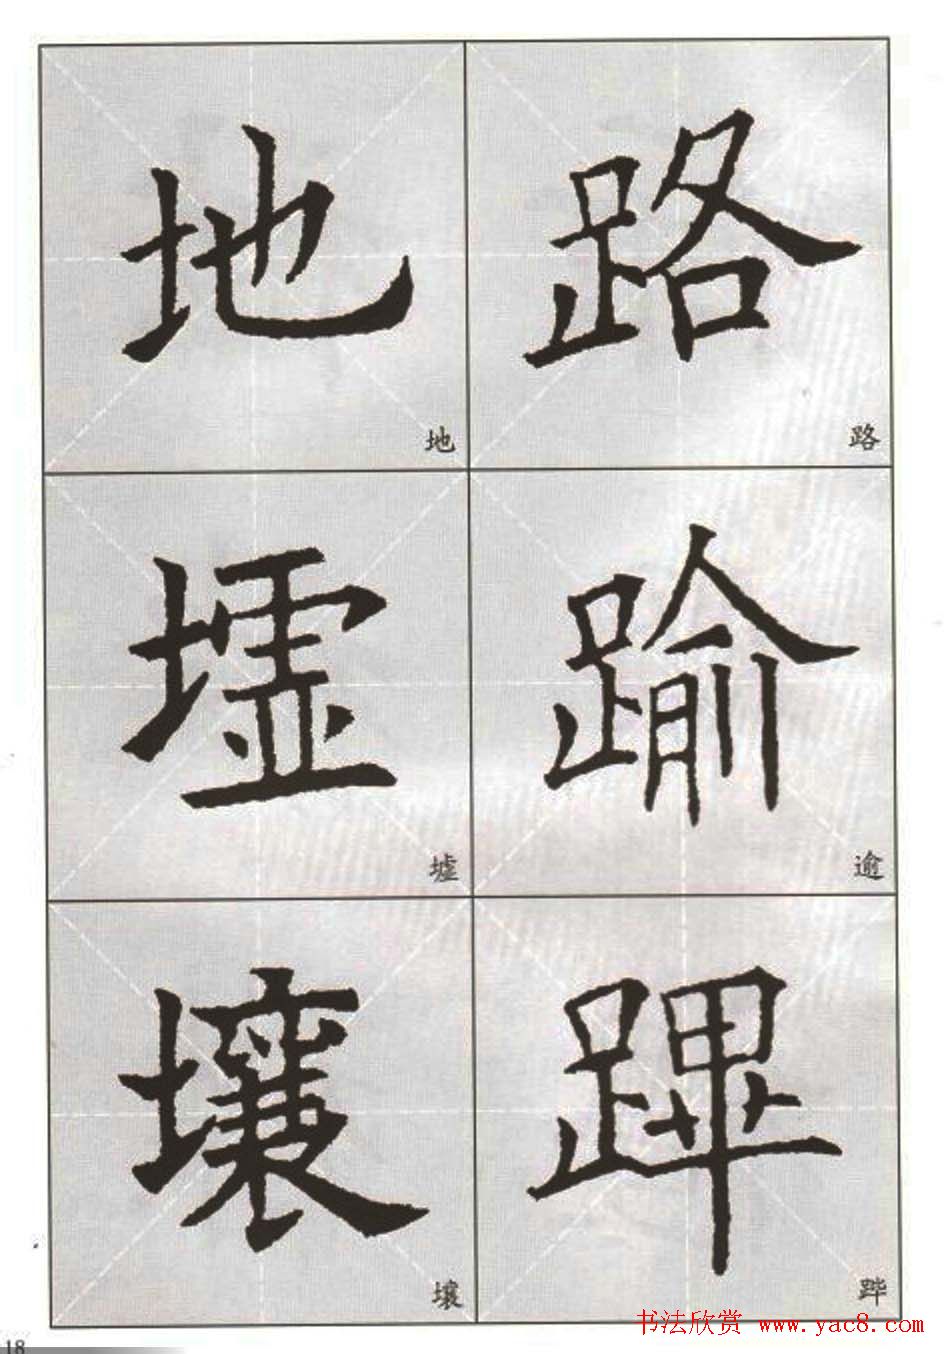 地 路
地 路
墟 踰
墟 逾
壤 蹕
壤 跸
书法欣赏 www.yac8.com
18